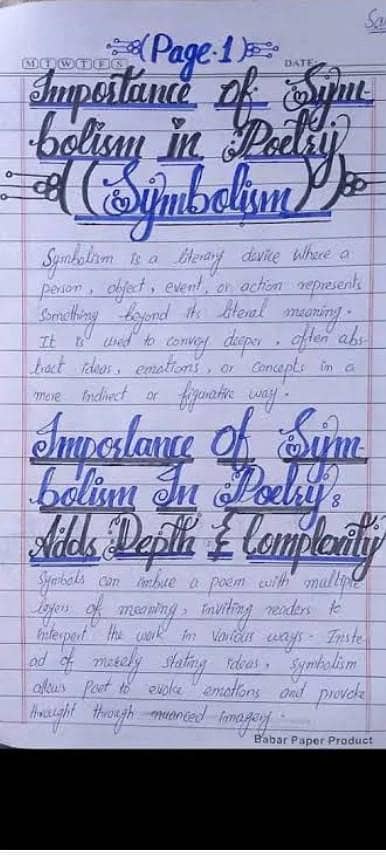 (Page-1)
M T W T F S
DATE:
Importance of Sym-
bolism in Poetry
((Symbolism))
Symbolism is a literary device where a
person, object, event, or action represents
Something beyond its literal meaning.
It is used to convey deeper, often abs-
tract ideas, emotions, or concepts in a
more indirect or figurative way.
Importance Of Sym-
bolism In Poetry:
Adds Depth & Complexity
Symbols can imbue a poem with multiple
layers of meaning, inviting readers to
interpert the work in various ways. Inste-
ad of merely stating ideas, symbolism
allows Poet to evoke emotions and provoke
thought through nuanced imagery.
Babar Paper Product